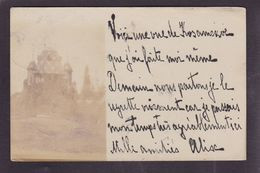 Voici une vue de
que j'ai faite moi même
Demain nous partons je le
regrette vivement car je passais
mon temps très agréablement ici
Mille amitiés Alix